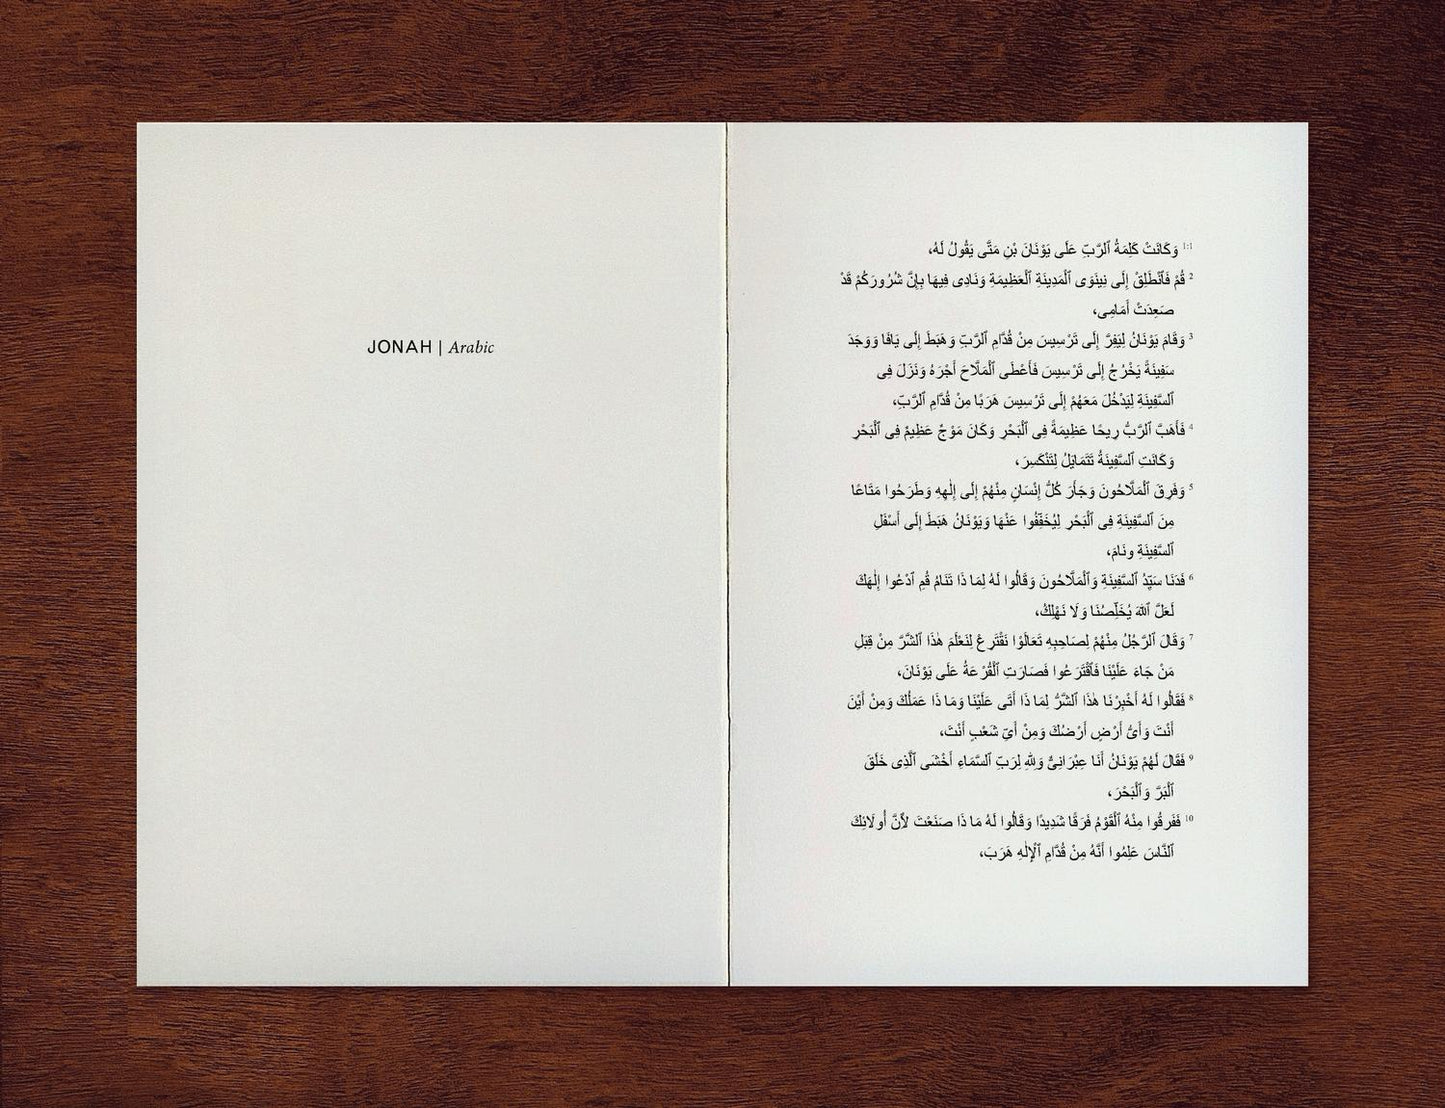 JONAH | Arabic
1:1 وَكَانَتْ كَلِمَةُ ٱلرَّبِّ عَلَى يَوْنَانَ بْنِ مَتَّى يَقُولُ لَهُ،
2 قُمْ فَٱنْطَلِقْ إِلَى نِينَوَى ٱلْمَدِينَةِ ٱلْعَظِيمَةِ وَنَادِى فِيهَا بِإِنَّ شُرُورَكُمْ قَدْ
صَعِدَتْ أَمَامِى،
3 وَقَامَ يَوْنَانُ لِيَفِرَّ إِلَى تَرْسِيسَ مِنْ قُدَّامِ ٱلرَّبِّ وَهَبَطَ إِلَى يَافَا وَوَجَدَ
سَفِينَةً يَخْرُجُ إِلَى تَرْسِيسَ فَأَعْطَى ٱلْمَلَّاحَ أَجْرَهُ وَنَزَلَ فِى
ٱلسَّفِينَةِ لِيَدْخُلَ مَعَهُمْ إِلَى تَرْسِيسَ هَرَبًا مِنْ قُدَّامِ ٱلرَّبِّ،
4 فَأَهَبَّ ٱلرَّبُّ رِيحًا عَظِيمَةً فِى ٱلْبَحْرِ وَكَانَ مَوْجٌ عَظِيمٌ فِى ٱلْبَحْرِ
وَكَانَتِ ٱلسَّفِينَةُ تَتَمَايَلُ لِتَنْكَسِرَ،
5 وَفَرِقَ ٱلْمَلَّاحُونَ وَجَأَرَ كُلُّ إِنْسَانٍ مِنْهُمْ إِلَى إِلٰهِهِ وَطَرَحُوا مَتَاعًا
مِنَ ٱلسَّفِينَةِ فِى ٱلْبَحْرِ لِيُخَفِّفُوا عَنْهَا وَيَوْنَانُ هَبَطَ إِلَى أَسْفَلِ
ٱلسَّفِينَةِ ونَامَ،
6 فَدَنَا سَيِّدُ ٱلسَّفِينَةِ وَٱلْمَلَّاحُونَ وَقَالُوا لَهُ لِمَا ذَا تَنَامُ قُمِ ٱدْعُوا إِلٰهَكَ
لَعَلَّ ٱللهَ يُخَلِّصُنَا وَلَا نَهْلِكُ،
7 وَقَالَ ٱلرَّجُلُ مِنْهُمْ لِصَاحِبِهِ تَعَالَوْا نَقْتَرِعْ لِنَعْلَمَ هٰذَا ٱلشَّرَّ مِنْ قِبَلِ
مَنْ جَاءَ عَلَيْنَا فَٱقْتَرَعُوا فَصَارَتِ ٱلْقُرْعَةُ عَلَى يَوْنَانَ،
8 فَقَالُوا لَهُ أَخْبِرْنَا هٰذَا ٱلشَّرُّ لِمَا ذَا أَتَى عَلَيْنَا وَمَا ذَا عَمَلُكَ وَمِنْ أَيْنَ
أَنْتَ وَأَىُّ أَرْضٍ أَرْضُكَ وَمِنْ أَىِّ شَعْبٍ أَنْتَ،
9 فَقَالَ لَهُمْ يَوْنَانُ أَنَا عِبْرَانِىٌّ وَلِلهِ لِرَبِّ ٱلسَّمَاءِ أَخْشَى ٱلَّذِى خَلَقَ
ٱلْبَرَّ وَٱلْبَحْرَ،
10 فَفَرِقُوا مِنْهُ ٱلْقَوْمُ فَرَقًا شَدِيدًا وَقَالُوا لَهُ مَا ذَا صَنَعْتَ لأَنَّ أُولَائِكَ
ٱلنَّاسَ عَلِمُوا أَنَّهُ مِنْ قُدَّامِ ٱلْإِلٰهِ هَرَبَ،